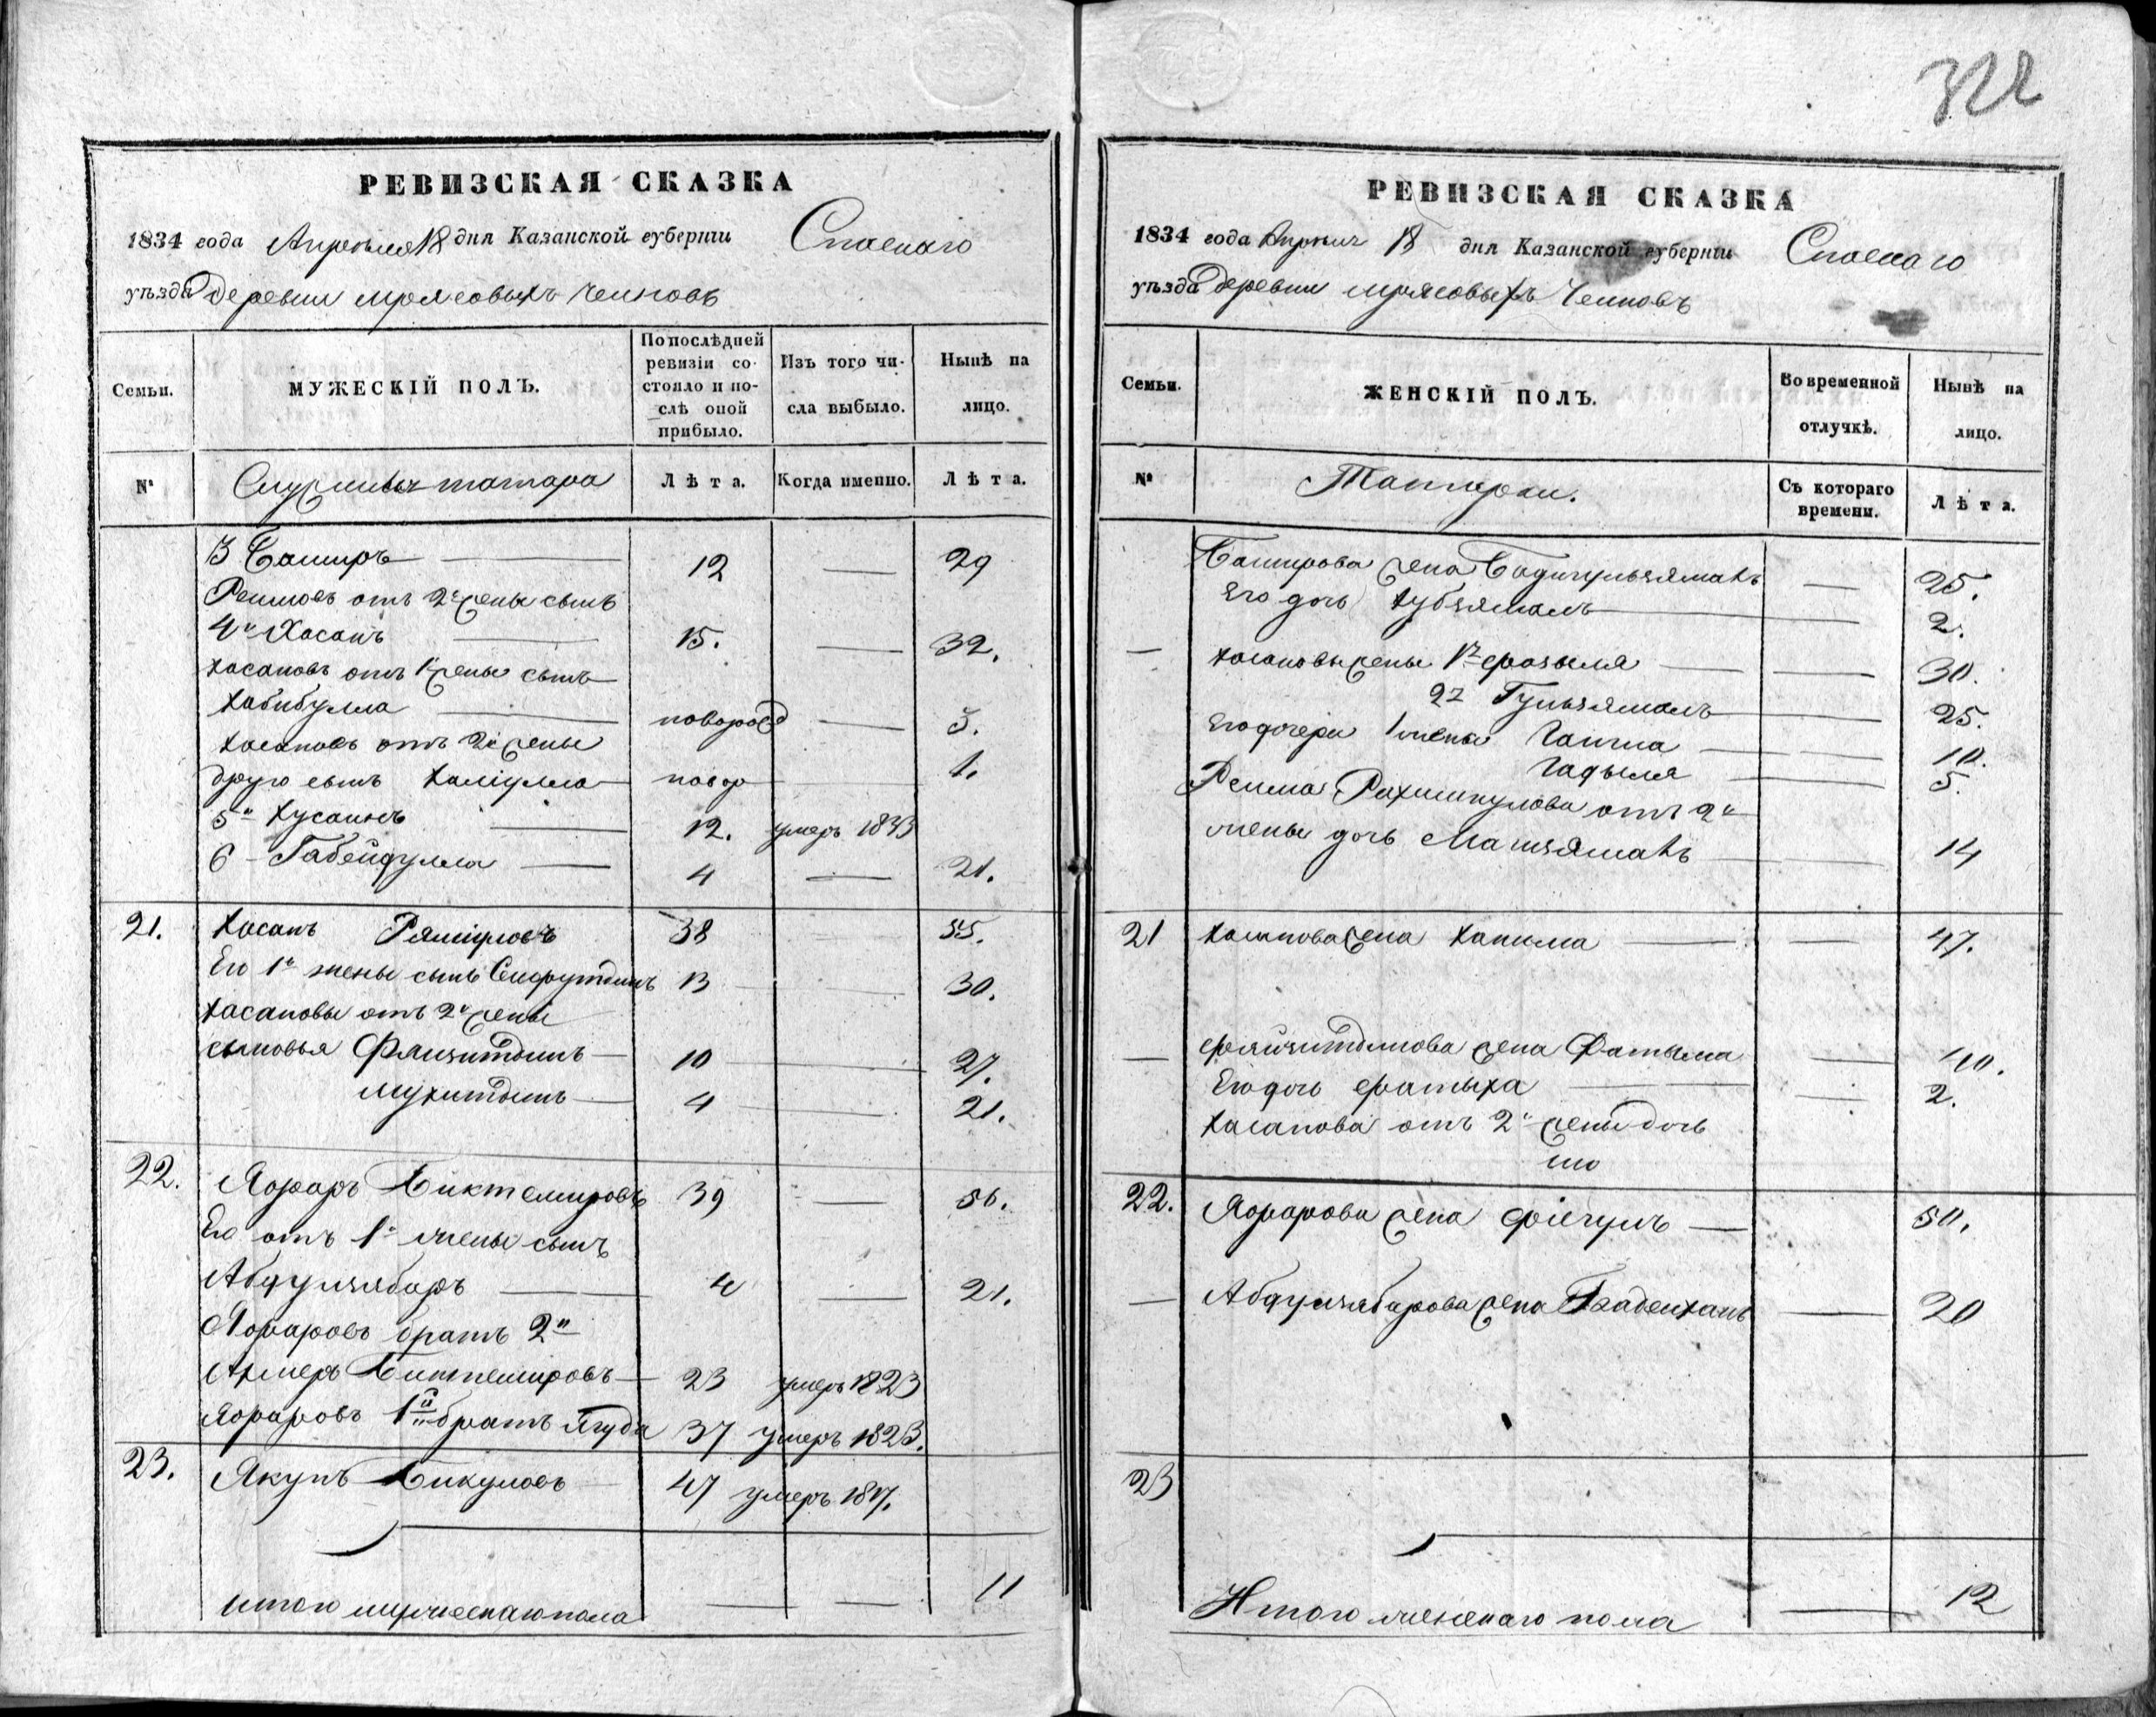 322
РЕВИЗСКАЯ СКАЗКА
1834 года Апреля 18 дня Казанской губернии Спаскаго
уѣзда Деревни
Семьи.
МУЖЕСКІЙ ПОЛЪ.
По послѣдней ревизіи состояло и послѣ оной прибыло.
Изъ того числа выбыло.
Нынѣ на лицо.
№ татара Лѣта. Когда именно. Лѣта.
3 Баширъ 12 — 29
от 2й жены сынъ
4й Хасанъ 15. — 32.
Хасановъ отъ 1й жены сынъ
Хабибулла новорожд — 5.
Хасановъ отъ 2й жены
другой сынъ Халіулла новор 1.
5й Хусаинъ 12. умеръ 1833
6 Габейдулла 4 — 21.
21. Хасанъ 38 55.
Его 1й жены сынъ Сейфутдинъ 13 30.
Хасановы отъ 2й жены
сыновья Фяизитдинъ 10 27.
Мухитдинъ 4 21.
22. Яфаръ Биктемировъ 39 — 56.
Его отъ 1й жены сынъ
Абдулзябаръ 4 — 21.
Яфаровъ братъ 2й
Биктемировъ 23 умеръ 1823
Яфаровъ 1й братъ Ягуда 37 умеръ 1823.
23. Якупъ Бикуловъ 47 умеръ 1817.
Итого мужескаго пола — — 11
РЕВИЗСКАЯ СКАЗКА
1834 года Апреля 18 дня Казанской губерніи Спаскаго
уѣзда Деревни
Семьи.
ЖЕНСКІЙ ПОЛЪ.
Во временной отлучкѣ.
Нынѣ на лицо.
№ Татарки. Съ котораго времени. Лѣта.
Баширова жена — 25.
Его дочь 2.
— Хасановы жены 1я Фазыля — 30.
2я Гульзямалъ 25.
Его дочери 1 жены 10.
5.
отъ 2й
жены дочь 14
21 Хасанова жена Ханима — 47.
— Фяйзитдинова жена Фатыма — 40.
Его дочь Фатыха — 2.
Хасанова отъ 2й жены дочь
22. Яфарова жена 50.
— Абдулзябарова жена — 20
23
Итого женскаго пола — 12